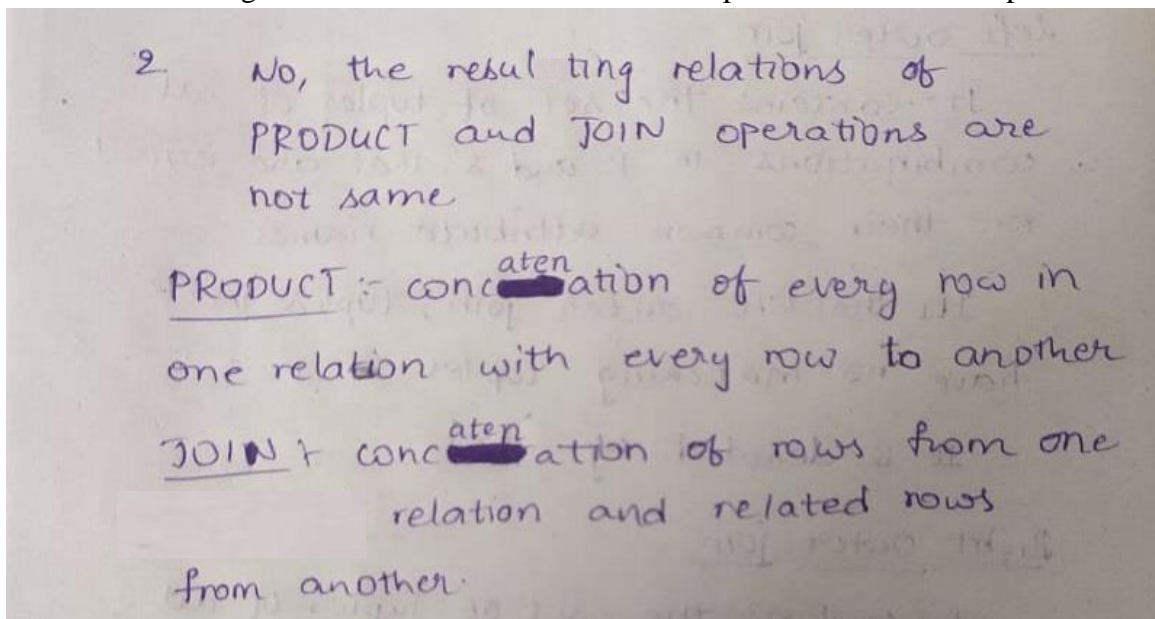 2. No, the resulting relations of
PRODUCT and JOIN operations are
not same
PRODUCT :- concatenation of every row in
one relation with every row to another
JOIN :- concatenation of rows from one
relation and related rows
from another.